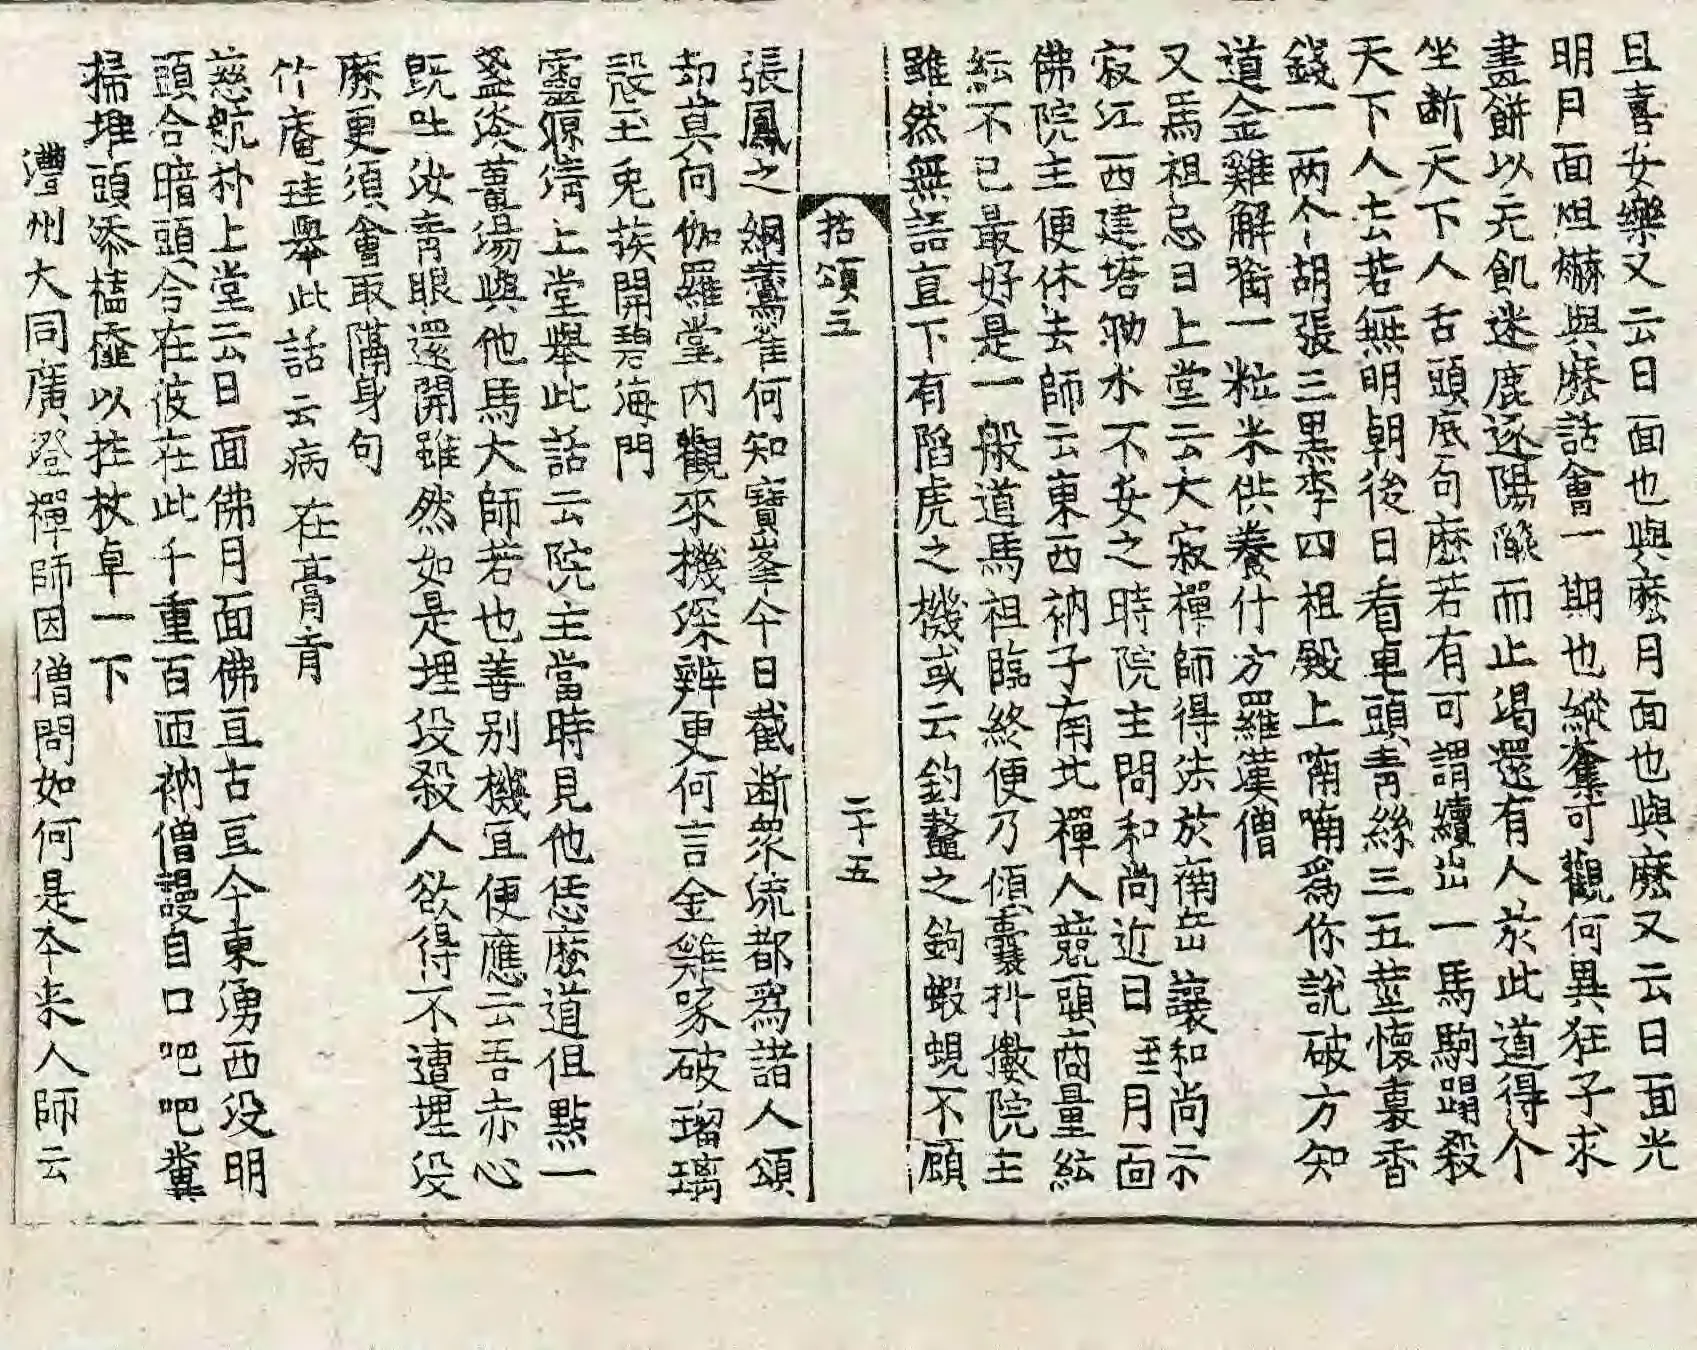 且喜安樂又云日面也與麽月面也與麽又云日面光
明月面炟爀與麽話會一期也縱奪可觀何異狂子求
畫餅以充飢迷鹿逐陽𦦨而止渴還有人於此道得个
坐斷天下人舌頭底句麽若有可謂續出一馬駒蹋殺
天下人去若無明朝後日看車頭靑絲三五莖懷裏香
錢一兩个胡張三黑李四祖殿上喃喃爲你說破方知
道金雞解銜一粒米供養什方羅漢僧
又馬祖忌日上堂云大寂禪師得法於南岳讓和尚示
寂江西建塔泐水不安之時院主問和尚近日 至 月面
佛院主便休去師云東西衲子南北禪人競頭商量紜
紜不已最好是一般道馬祖臨終便乃傾囊抖擻院主
雖然無語直下有陷虎之機或云釣鼇之鉤蝦蜆不顧
拈頌三
二十五
張鳳之網鷰雀何知寶峯今日截斷衆流都爲諸人頌
却莫向伽羅堂內覰來機深辨更何言金雞啄破瑠璃
殼玉兎挨開碧海門
靈源淸上堂擧此話云院主當時見他恁麽道但點一
盞淡薑湯與他馬大師若也善別機宜便應云吾亦心
旣吐汝靑眼還開雖然如是埋没殺人欲得不遭埋没
麽更須會取隔身句
竹庵珪擧此話云病在膏肓
慈航朴上堂云日面佛月面佛亘古亘今東湧西没明
頭合暗頭合在彼在此千重百匝衲僧謾自口吧吧糞
掃堆頭添榼𣜂以拄杖卓一下
灃州大同廣澄禪師因僧問如何是本来人師云